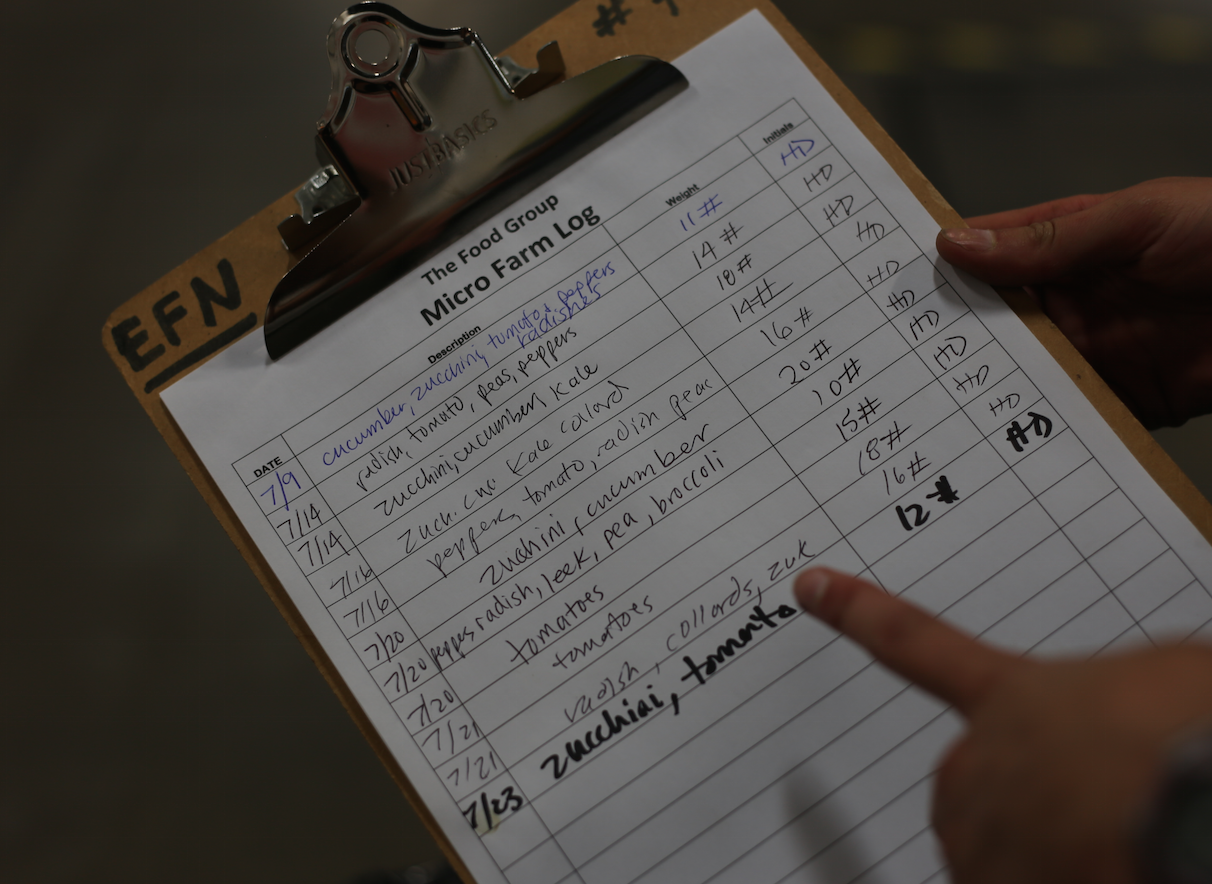 # 
JUSTBASICS
EFN
The Food Group
Micro Farm Log
DATE Description Weight Initials
7/9 cucumber, zucchini, tomato, peppers 11# HD
radishes
7/14 radish, tomato, peas, peppers 14# HD
7/14 zucchini, cucumber, kale 18# HD
7/16 zuch. cuc kale collard 14# HD
7/16 peppers, tomato, radish 16# HD
7/20 zucchini, cucumber 20# HD
7/20 radish, leek, pea, broccoli 10# HD
7/20 tomatoes 15# HD
7/21 tomatoes 18# HD
7/21 radish, collards, zuk 16# HD
7/23 zucchini, tomato 12# HD